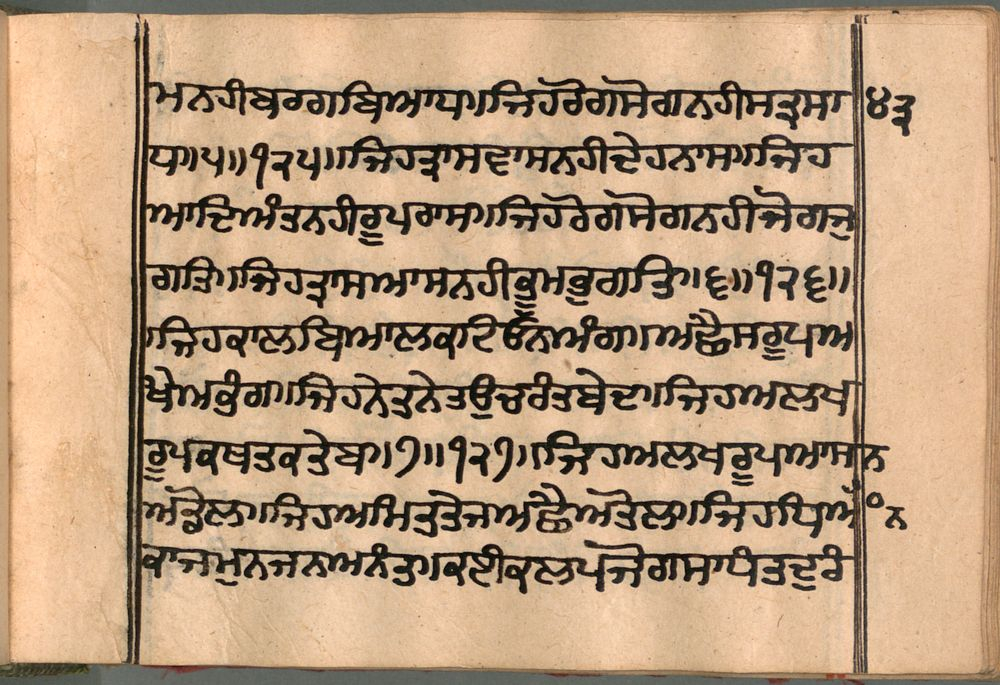 ਮਨਹੀਬਰਗਬਿਆਧ॥ਜਿਹਰੋਗਸੋਗਨਹੀਸਤ੍ਰਸਾ ੪੩
ਧ॥੫॥੧੨੫॥ਜਿਹਤ੍ਰਾਸਵਾਸਨਹੀਦੇਹਨਾਸ॥ਜਿਹ
ਆਦਿਅੰਤਨਹੀਰੂਪਰਾਸ॥ਜਿਹਰੋਗਸੋਗਨਹੀਜੋਗਜੁ
ਗਤਿ॥ਜਿਹਤ੍ਰਾਸਆਸਨਹੀਭੂਮਭੁਗਤਿ॥੬॥੧੨੬॥
॥ਜਿਹਕਾਲਬਿਆਲਕਾਟਿਓਨਅੰਗ॥ਅਛੈਸਰੂਪਅ
ਖੇਅਭੰਗ॥ਜਿਹਨੇਤਨੇਤਉਚਰੰਤਬੇਦ॥ਜਿਹਅਲਖ
ਰੂਪਕਥਤਕਤੇਬ॥੭॥੧੨੭॥ਜਿਹਅਲਖਰੂਪਆਸਨ
ਅਡੋਲ॥ਜਿਹਅਮਿਤਤੇਜਅਛੈਅਤੋਲ॥ਜਿਹਧਿਆਨ
ਕਾਜਮੁਨਜਨਅਨੰਤ॥ਕਈਕਲਪਜੋਗਸਾਧੰਤਦੁਰੰ